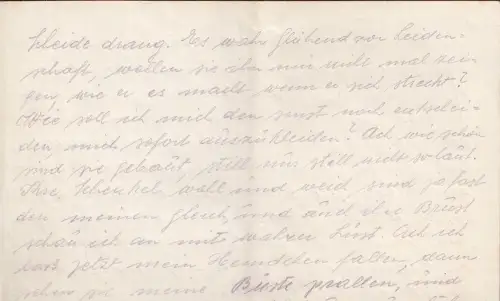 kleide drang. Es wahr glühend vor Leiden-
schaft, wollen sie ihn mir nicht mal zei-
gen, wie er es macht wenn er sich streckt?
Wie soll ich mich den sonst noch entschei-
den, mich sofort auszukleiden? Ach wie schön
sind sie gebaut, still uns still nicht so laut.
Ihre Schenkel woll und weid sind ja fast
den meinen gleich, und auch ihre Büust
schau ich an mit wahrer Lust. Ach ich
lass jetzt mein Hemdchen fallen, dann
sehen sie meine Büste prallen, und